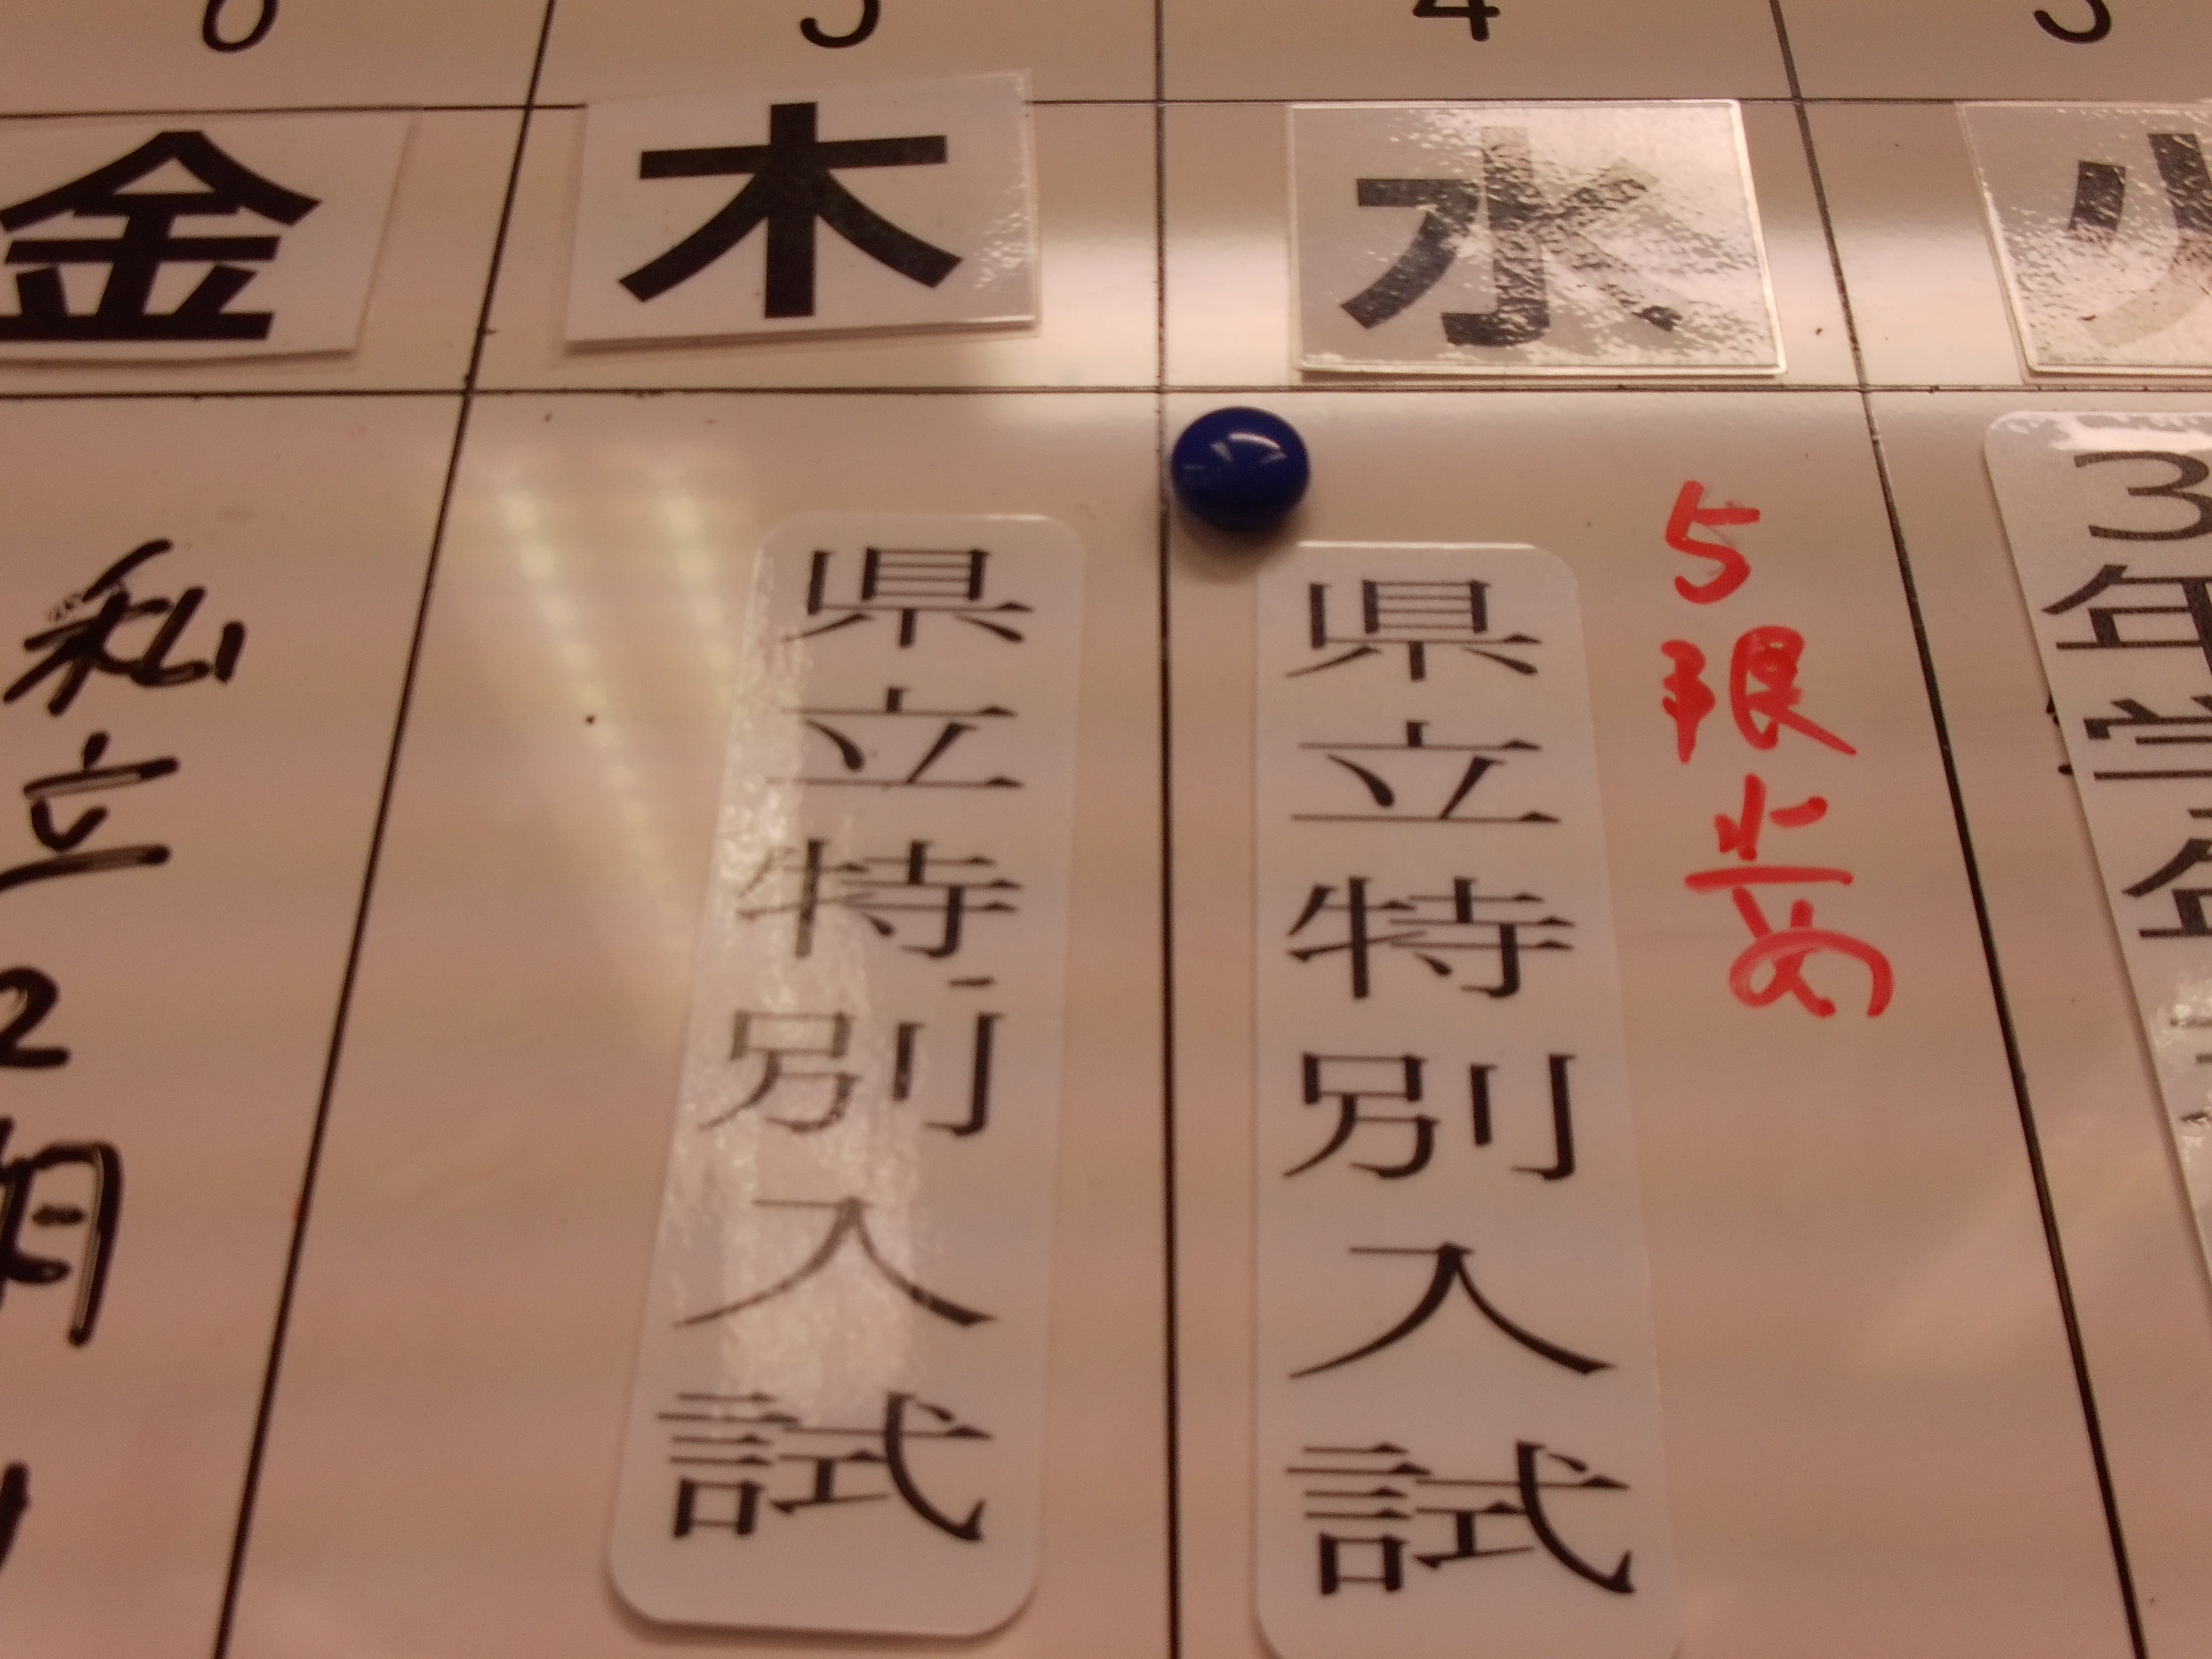 3
火
3年学年
4
水
5限止め
県立特別入試
5
木
県立特別入試
6
金
私立2期